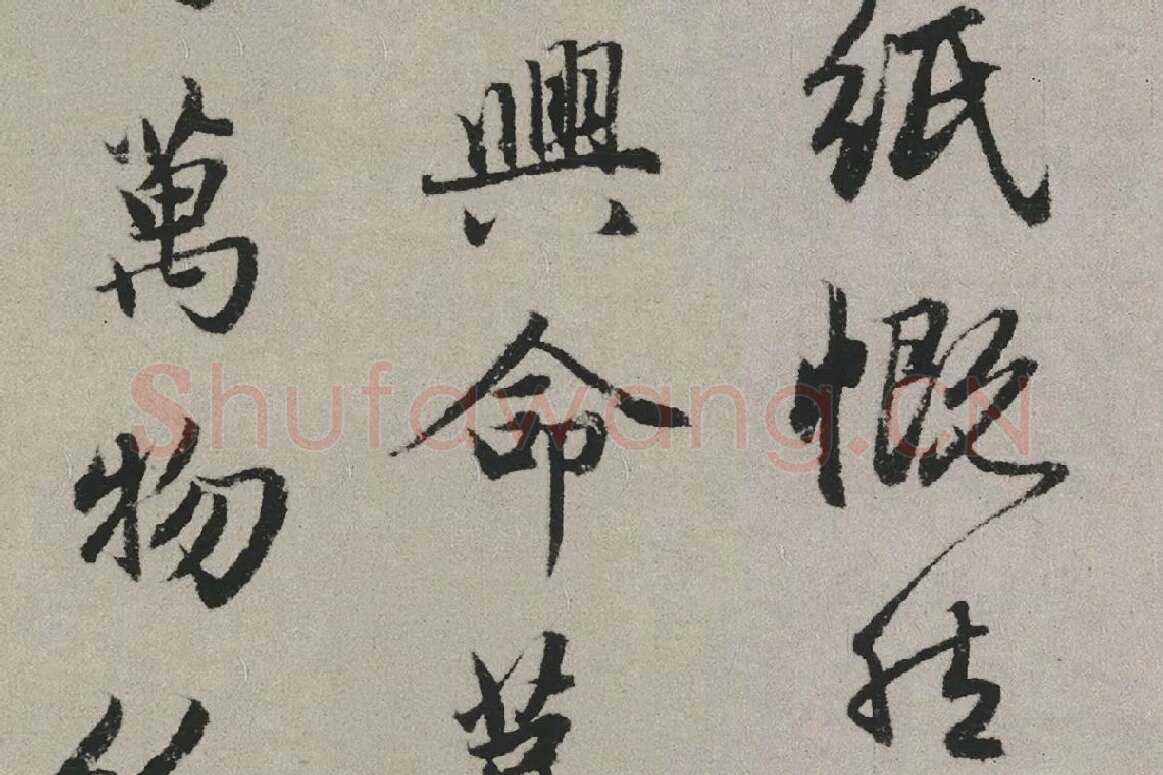 紙慨然
興命
萬物
Shufawang.CN